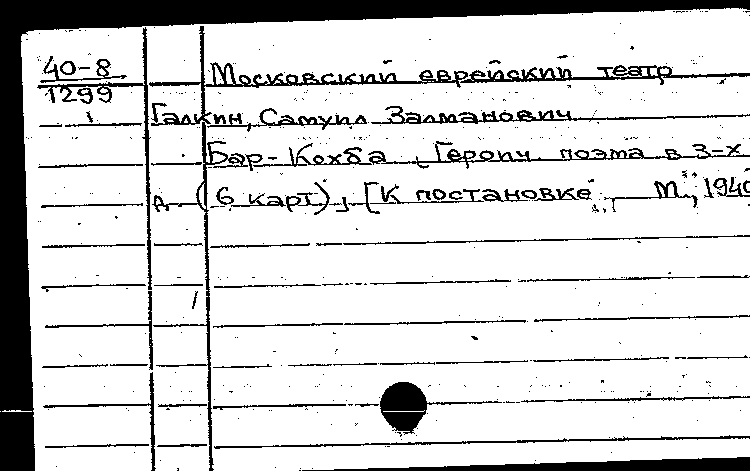 40-8
1299
Московский еврейский театр
Галкин, Самуил Залманович
Бар-Кохба. [Героич. поэма в 3-х
д. (6 карт)]. [К постановке. М., 1940